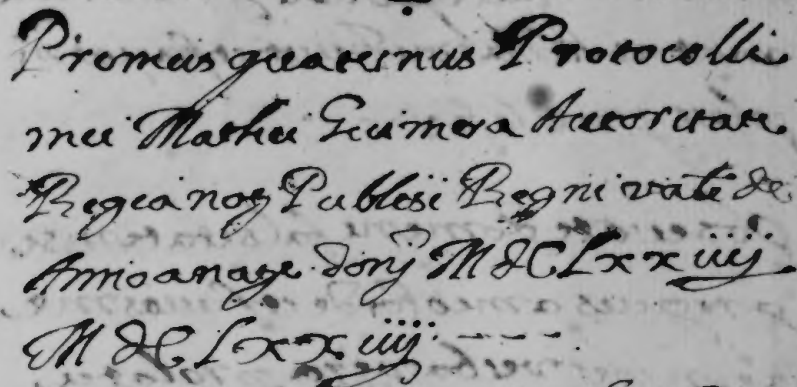 Primus quaternus Protocolli
mei Mathei Guimera Autoritate
Regia notj Publici Regni vale de
Anno a natte donj MdCLxxiiij
MdCLxxiiij. - - - -.